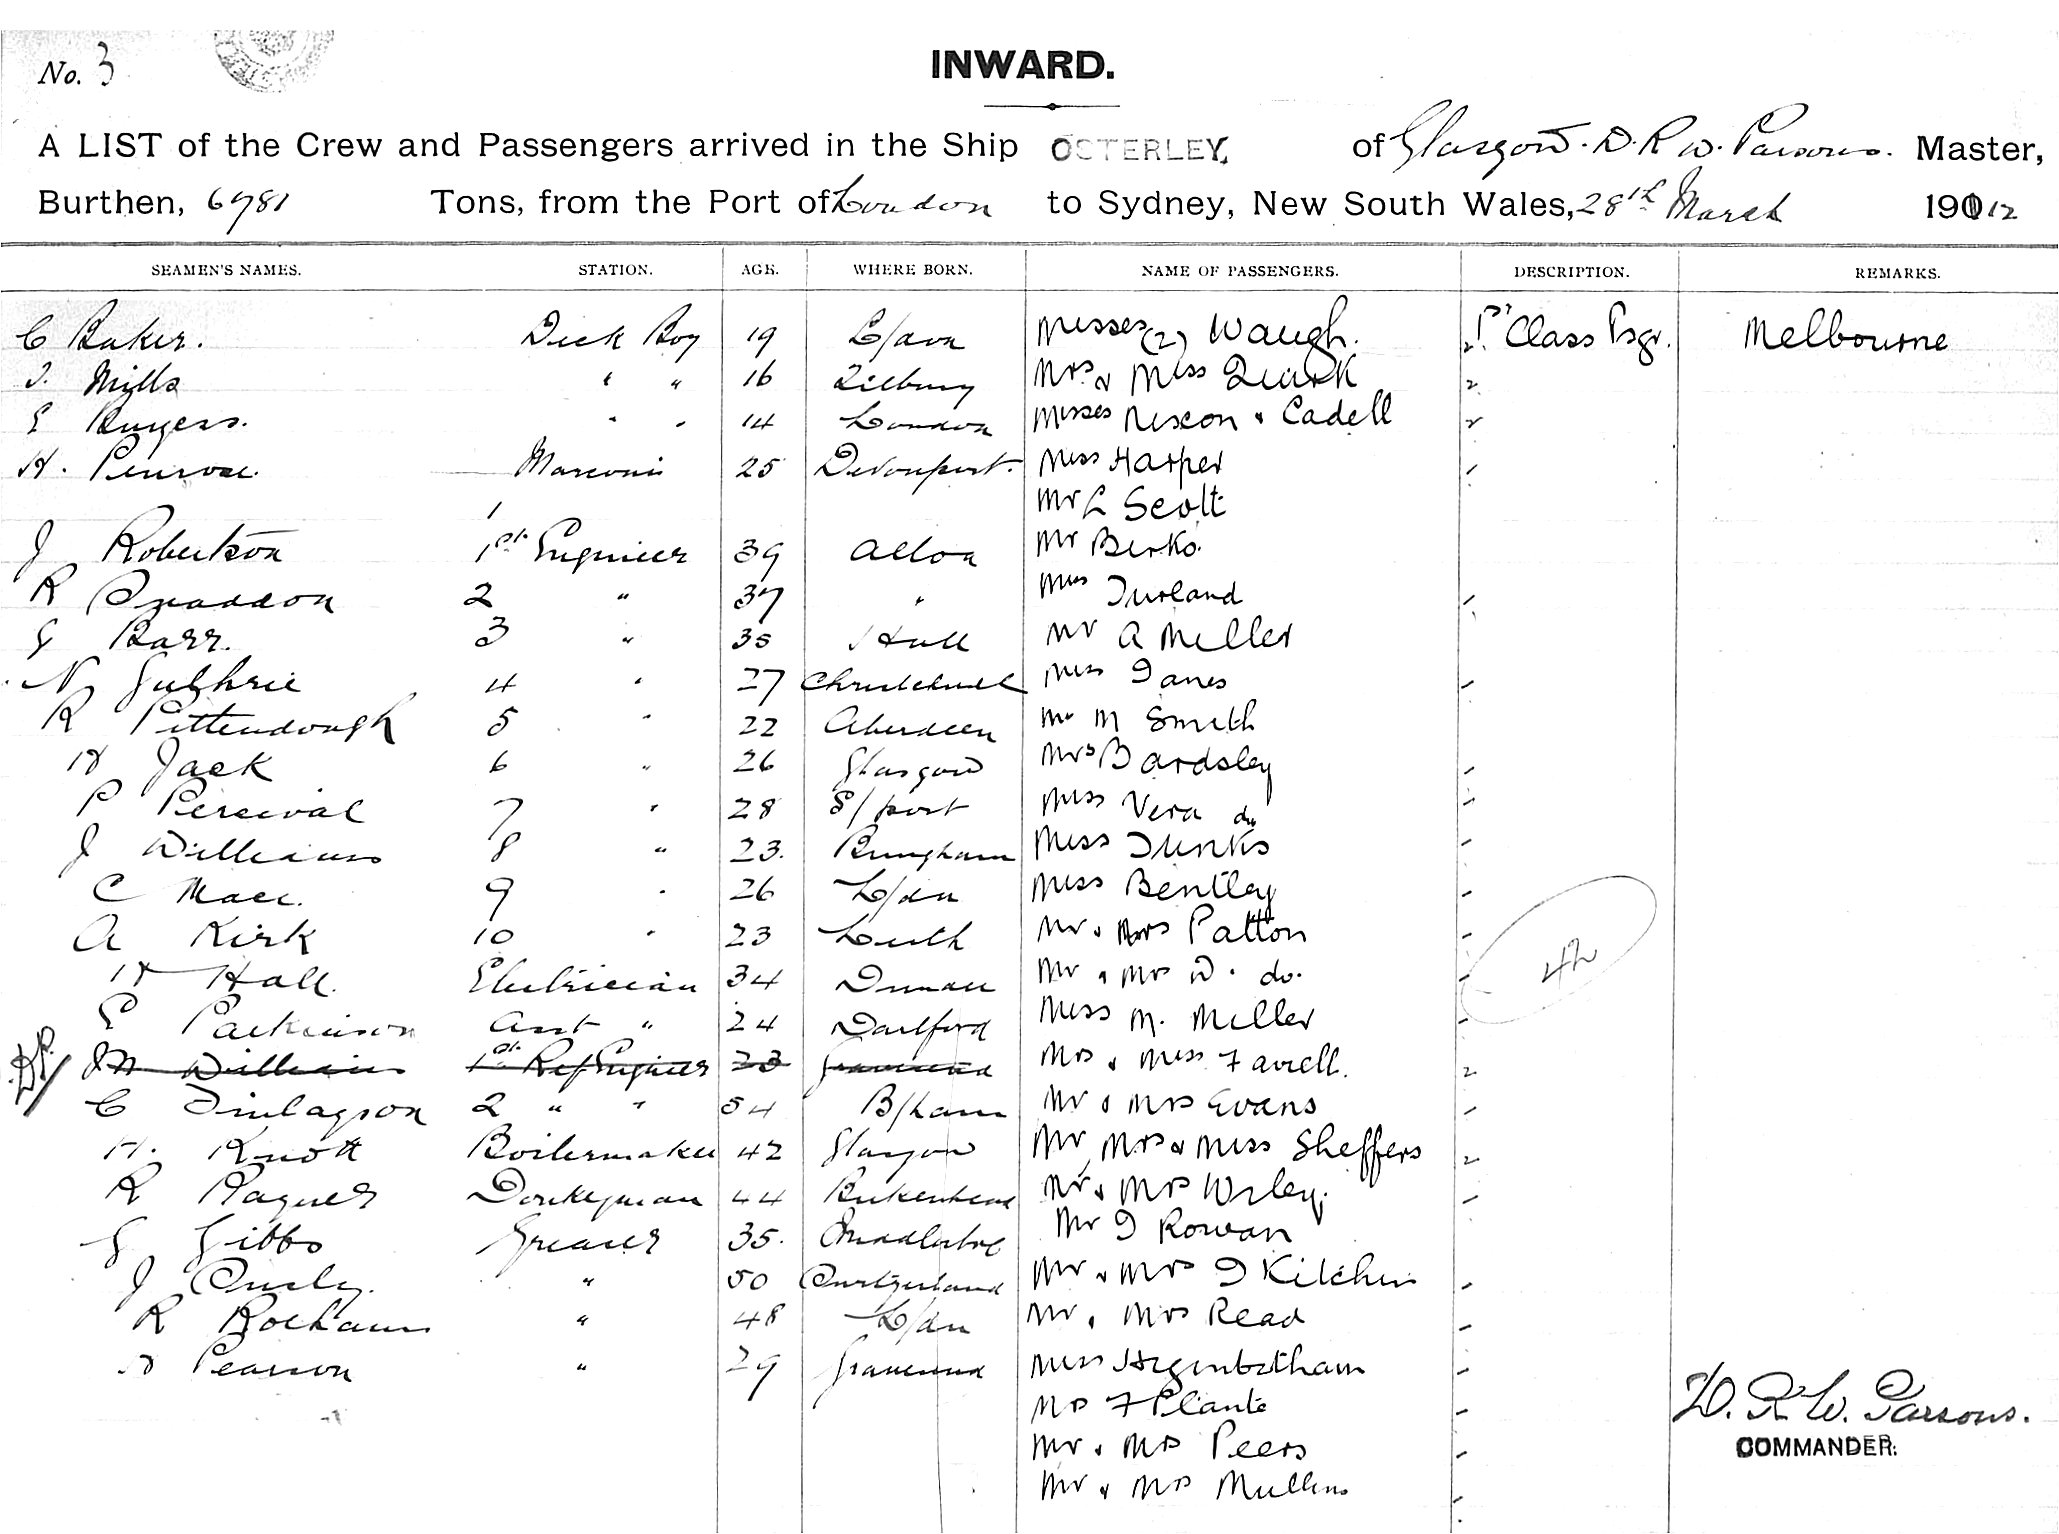 No. 3
INWARD.
A LIST of the Crew and Passengers arrived in the Ship OSTERLEY, of Glasgow. D. R. W. Parsons. Master,
Burthen, 6781 Tons, from the Port of London to Sydney, New South Wales, 28th March 1912
SEAMEN'S NAMES. STATION. AGE. WHERE BORN. NAME OF PASSENGERS. DESCRIPTION. REMARKS.
C Baker. Deck Boy 19 Misses (2) Waugh. 2 1st Class Psgr. Melbourne
J. Mills " " 16 Tilbury Mrs & Miss Quark 2
E " " 14 London Misses Nixon & Cadell 2
H. Penrose. Marconi 25 Devonport. Miss Harper
Mr L Scott
J Robertson 1st Engineer 39 Alloa Mr Berko.
R 2 " 37 " Miss Turland
G Barr. 3 " 35 Hull Mr A Miller
N Guthrie 4 " 27 Christchurch Miss Janes
R Pittendough 5 " 22 Aberdeen Mr M Smith
H Jack 6 " 26 Glasgow Mrs Bardsley
P Percival 7 " 28 S/port Miss Vera do
J Williams 8 " 23. Miss Tunks
C 9 " 26 L/dn Miss Bentley
A Kirk 10 " 23 Leith Mr & Mrs Patton
H Hall. Electrician 34 Mr & Mrs D. do.
E Parkinson Asst " 24 Dartford Miss M. Miller
J M Williams 1st Ref Engineer 23 Gravesend Mrs & Miss Farrell. 2
C Finlayson 2 " " 54 B/ham Mr & Mrs Evans
H. Knott Boilermaker 42 Glasgow Mr, Mrs & Miss Sheffers 2
R Rayner Donkeyman 44 Birkenhead Mr & Mrs Wiley.
G Gibbs Greaser 35. Mr J Rowan
J " 50 Switzerland Mr & Mrs J Kitchin
R " 48 L/dn Mr & Mrs Read
Pearson " 29 Gravesend Miss Higinbotham
Mrs F Plante
Mr & Mrs Peers
Mr & Mrs Mullins
42
D. R. W. Parsons.
COMMANDER.